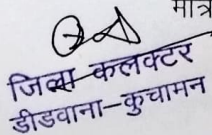 मात्र
जिला कलक्टर
डीडवाना-कुचामन